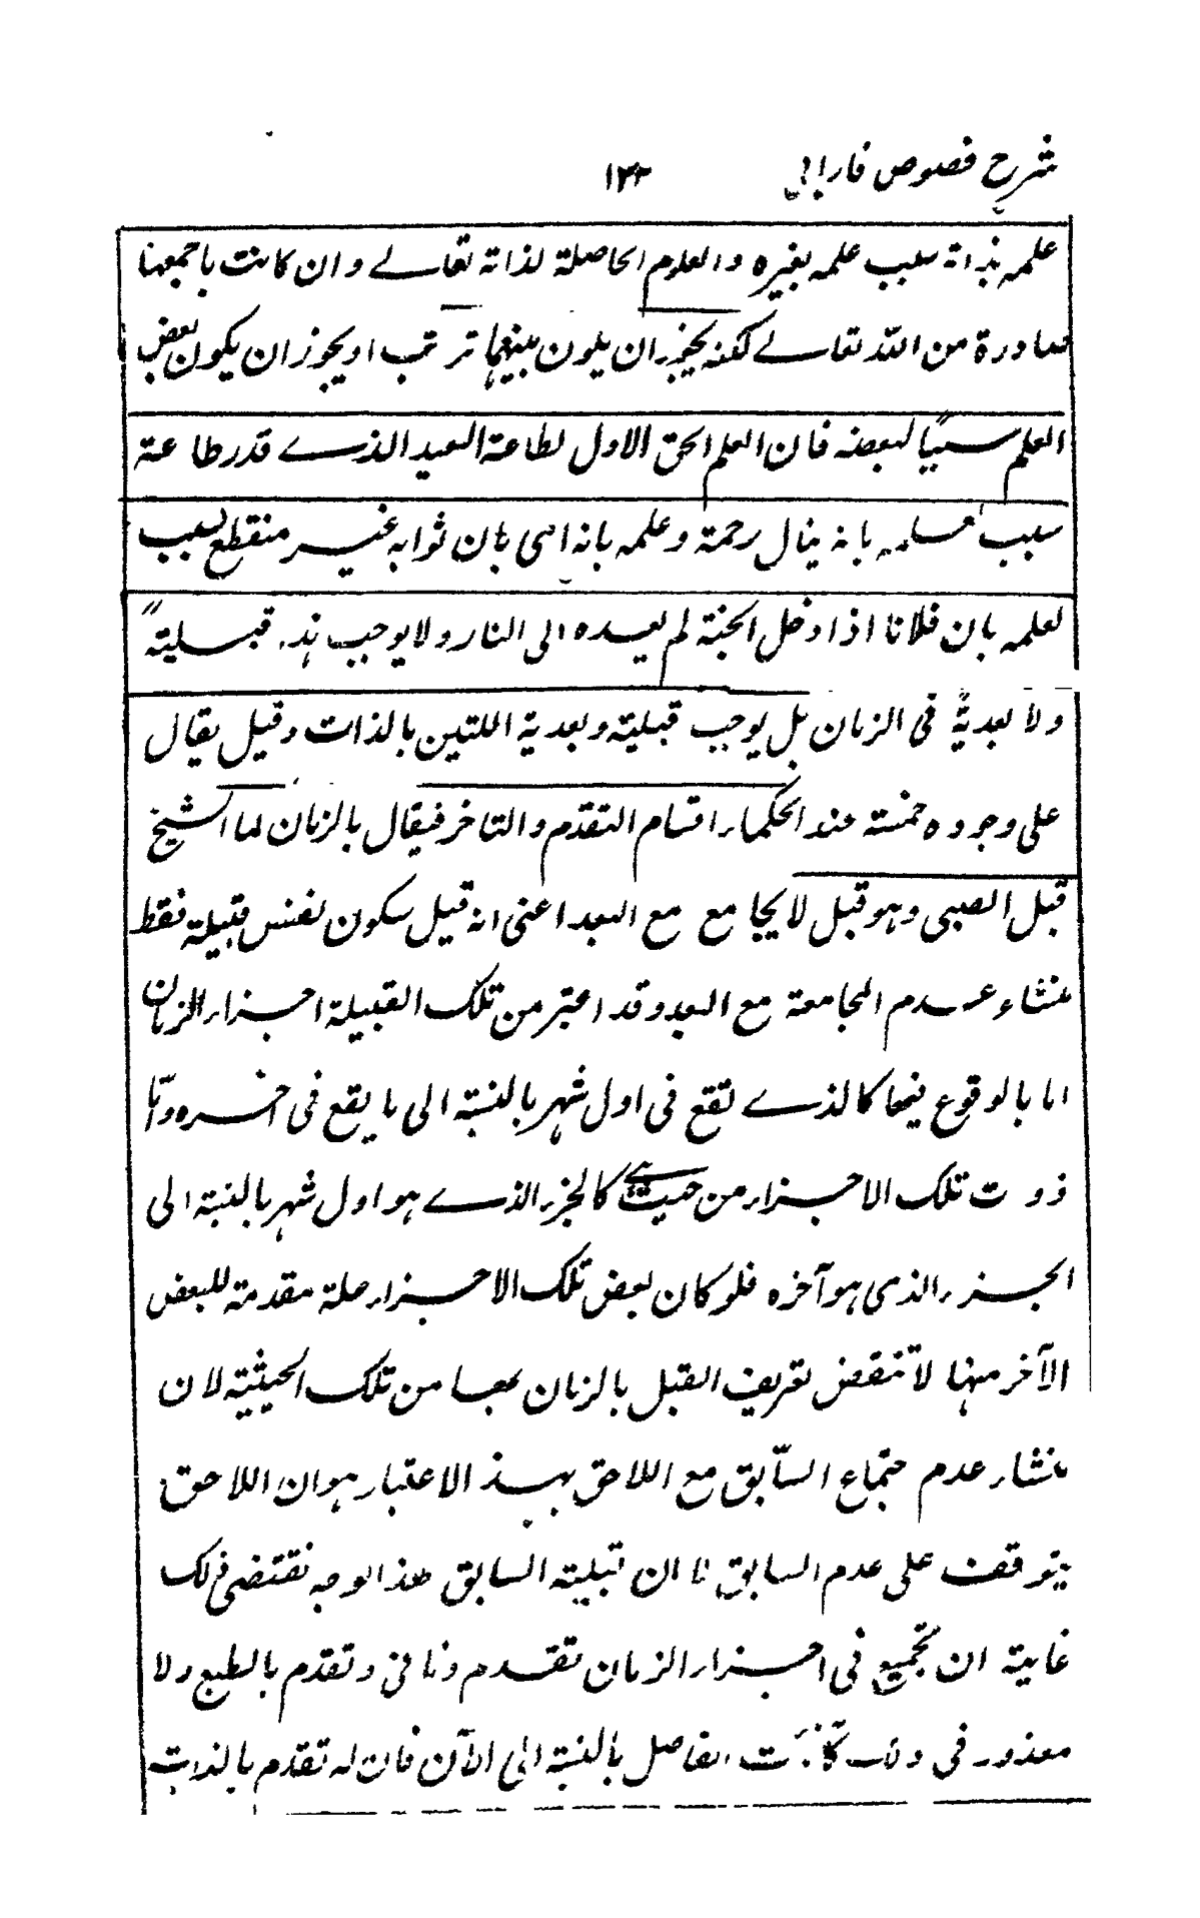 شرح فصوص فارابی ١٣٢
علمه بذاته سبب علمه بغیره والعلوم الحاصلة لذاته تعالے وان کانت باجمعها
صادرة من اللہ تعالے لکنه یجوز ان یکون بینهما ترتب اویجوز ان یکون بعض
العلم سبباً لبعضه فان العلم الحق الاول لطاعة العبد الذے قدر طاعة
سبب علمه بانه ینال رحمة وعلمه بانه ای بان ثوابه غیر منقطع سبب
لعلمه بان فلانا اذا دخل الجنة لم یعده الی النار ولا یوجب هذا قبلیةً
ولا بعدیةً فی الزمان بل یوجب قبلیة وبعدیة اللتین بالذات وقیل یقال
علی وجوه خمسة عند الحکماء اقسام التقدم والتاخر فیقال بالزمان لما الشیخ
قبل الصبی وهو قبل لا یجامع مع البعد اعنی انه قیل یکون نفس قبیلة فقط
منشاء عدم المجامعة مع البعد وقد اعتبر من تلک القبیلة اجزاء الزمان
اما بالوقوع فیها کالذے تقع فی اول شهر بالنسبة الی ما یقع فی اخره واما
ذوت تلک الاجزاء من حیث هے کالجزء الذے هو اول شهر بالنسبة الی
الجزء الذی هو آخره فلو کان بعض تلک الاجزاء علة مقدمة للبعض
الآخر منها لا تنقض تعریف القبل بالزمان بها من تلک الحیثیة لان
منشاء عدم جتماع السّابق مع اللاحق بهذ الاعتبار هو ان اللاحق
یتوقف علی عدم السابق لا ان قبلیة السابق هذا الوجه تقتضی ذلک
غایة ان تجمیع فی اجزاء الزمان تقدم زمانی وتقدم بالطبع ولا
معذور فی ذلک الفاصل بالنسبة الی الآن فان له تقدم بالذات